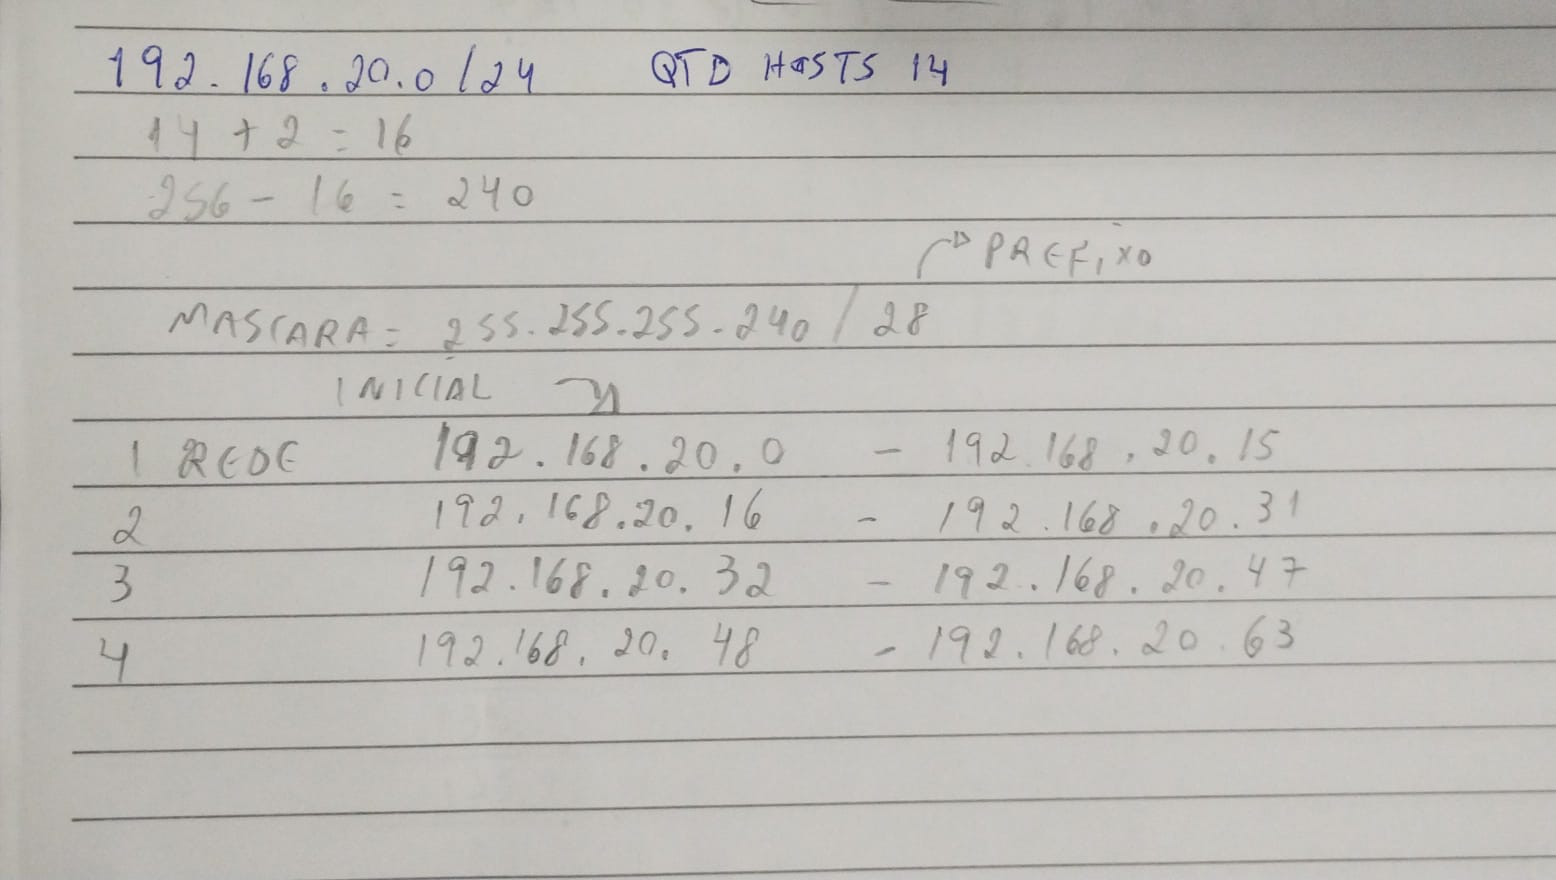 192.168.20.0/24 QTD HOSTS 14
14 + 2 = 16
256 - 16 = 240
PREFIXO
MASCARA = 255.255.255.240 / 28
INICIAL
1 REDE 192.168.20.0 - 192.168.20.15
2 192.168.20.16 - 192.168.20.31
3 192.168.20.32 - 192.168.20.47
4 192.168.20.48 - 192.168.20.63